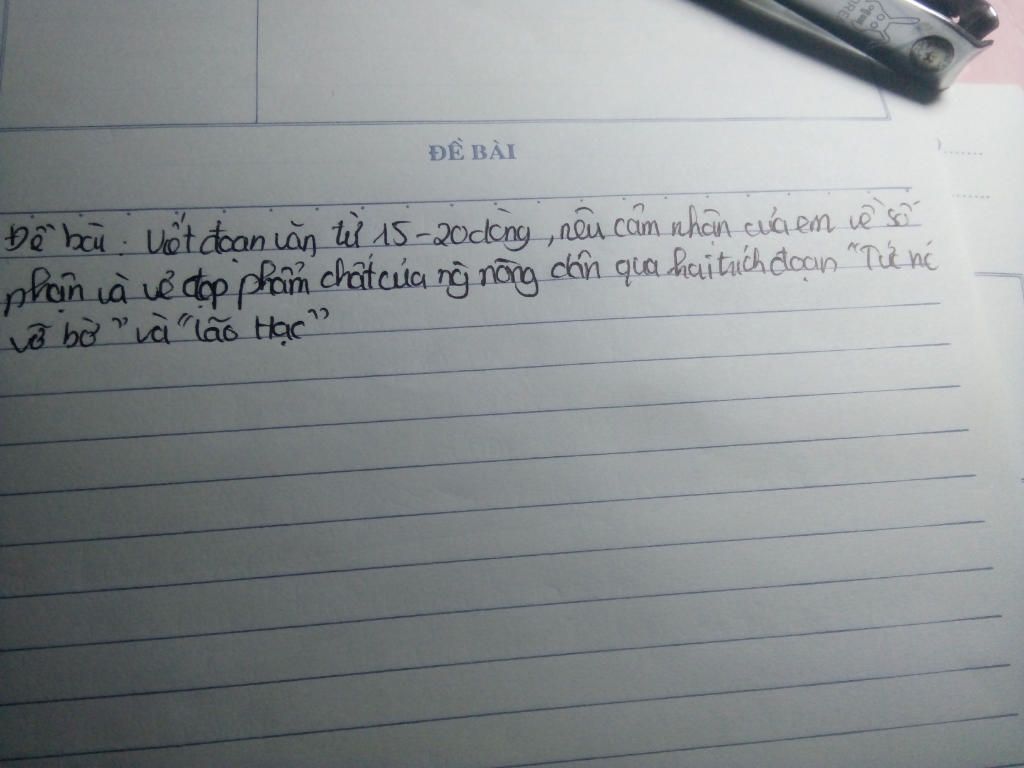 ĐỀ BÀI
Đề bài: Viết đoạn văn từ 15-20 dòng, nêu cảm nhận của em về số
phận và vẻ đẹp phẩm chất của ng nông dân qua hai trích đoạn "Tức nc
vỡ bờ" và "Lão Hạc"